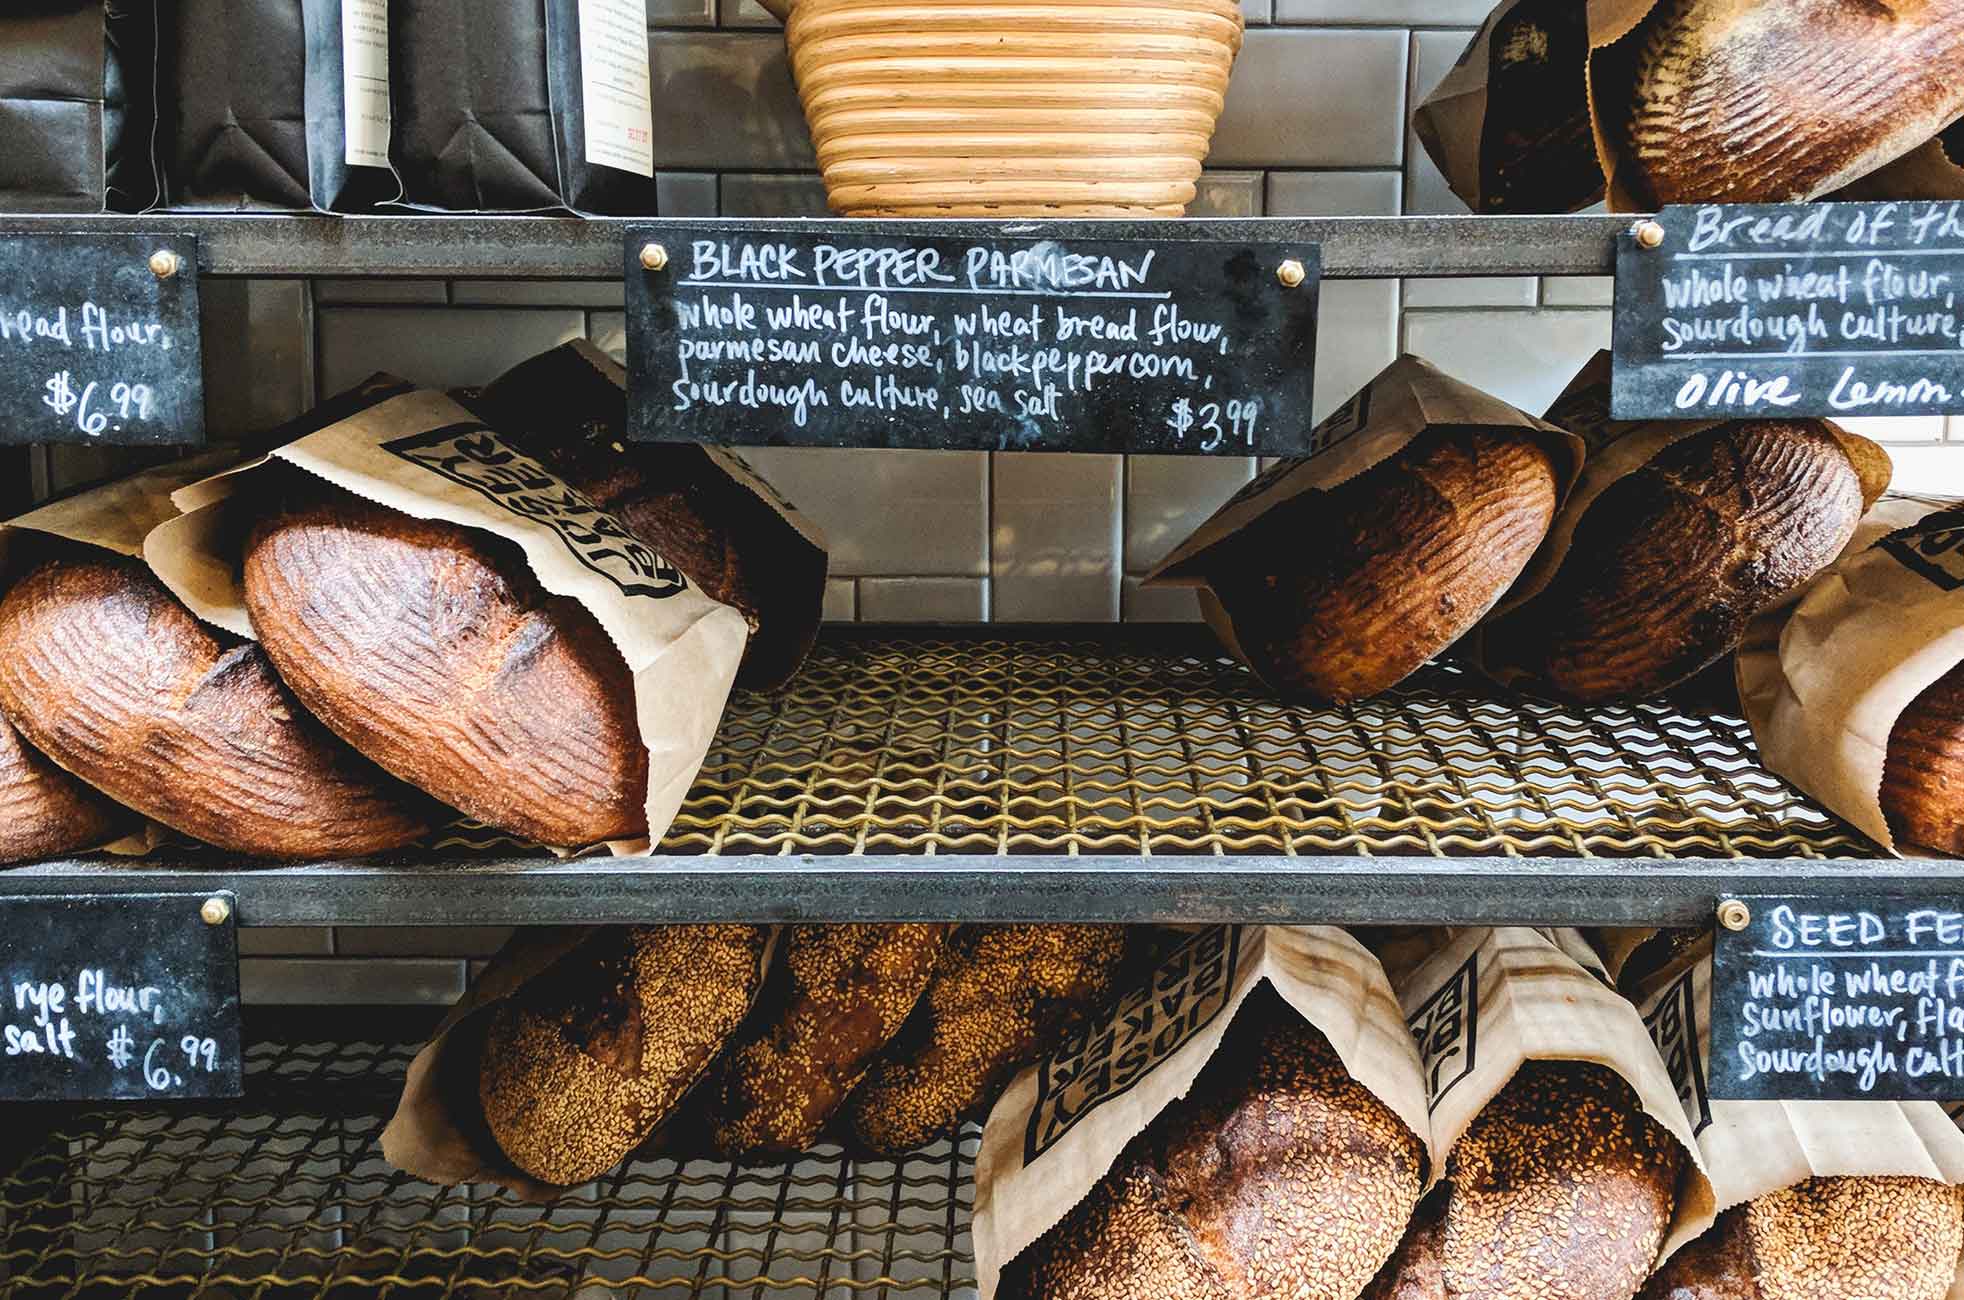 read flour,
$6.99
BLACK PEPPER PARMESAN
whole wheat flour, wheat bread flour,
parmesan cheese, blackpeppercorn,
sourdough culture, sea salt
$3.99
Bread of th
whole wheat flour,
sourdough culture,
Olive Lemon
JOSEY
BAKER
rye flour,
salt $6.99
JOSEY
BAKER
SEED FE
whole wheat f
sunflower, fla
sourdough cult